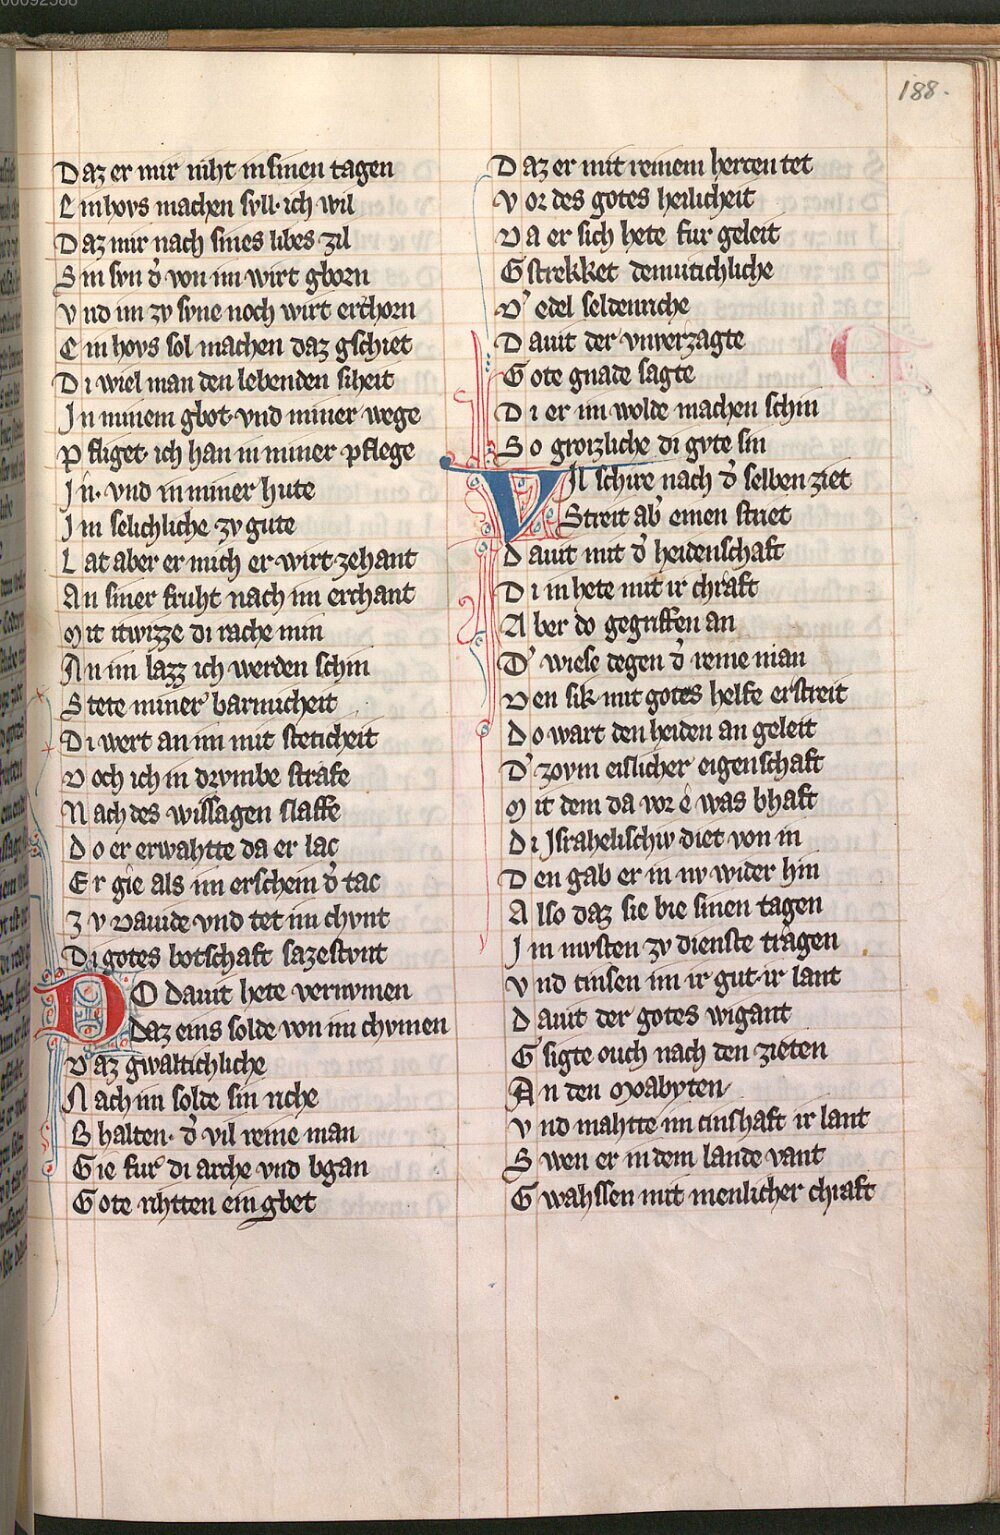 00092588
188.
Daz er mir niht in sinen tagen
Ein hovs machen syll· ich wil
Daz mir nach sines libes zil
Sin syn d̾ von im wirt gborn
Vnd im zv syne noch wirt erchorn
Ein hovs sol machen daz gschiet
Di wiel man den lebenden siheit
In minem gbot· vnd miner wege
Pfliget· ich han in miner pflege
In· vnd in miner hute
Im selichliche zv gute
Lat aber er mich er wirt zehant
An siner fruht nach im erchant
Mit itwizze di rache min
An im lazz ich werden schin
Stete miner barmicheit
Di wert an im mit steticheit
Doch ich in drvmbe strafe
Nach des wissagen slaffe
Do er erwahtte da er lac
Er gie als im erschein d̾ tac
Zv Dauide vnd tet im chvnt
Di gotes botschaft sazestvnt
DO dauit hete vernvmen
Daz eins solde von im chvmen
Daz gwaltichliche
Nach im solde sin riche
Bhalten· d̾ vil reine man
Gie fur di arche vnd bgan
Gote rihtten ein gbet
Daz er mit reinem hercen tet
Vor des gotes heilicheit
Da er sich hete fur geleit
Gstrekket demutichliche
D̾ edel seldenriche
Dauit der vnverzagte
Gote gnade sagte
Di er im wolde machen schin
So grozliche di gvte sin
VIl schire nach d̾ selben ziet
Streit ab̾ einen striet
Dauit mit d̾ heidenschaft
Di in hete mit ir chraft
Aber do gegriffen an
D̾ wiese degen d̾ reine man
Den sik mit gotes helfe erstreit
Do wart den heiden an geleit
D̾ zovm eislicher eigenschaft
Mit dem da vor ê was bhaft
Di Israhelischiv diet von in
Den gab er in nv wider hin
Also daz sie bie sinen tagen
Im mvsten zv dienste tragen
Vnd cinsen im ir gut ir lant
Dauit der gotes wigant
Gsigte ouch nach den zieten
An den Moabyten
Vnd mahtte im cinshaft ir lant
Swen er in dem lande vant
Gwahssen mit menlicher chraft